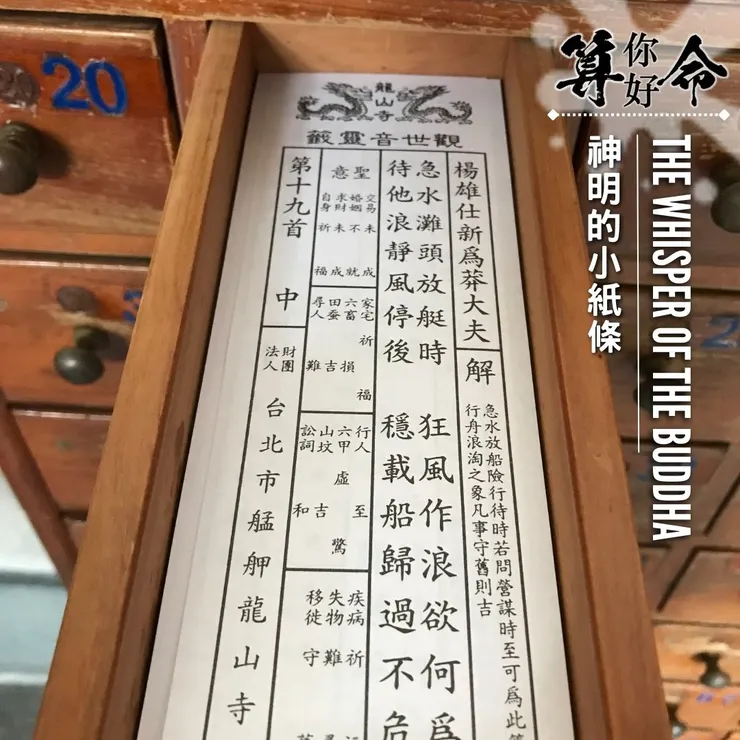 算你好命
神明的小紙條
THE WHISPER OF THE BUDDHA
20
龍山寺
觀世音靈籤
楊雄仕新爲莽大夫
解
急水放船險行待時若問營謀時至可爲此
行舟浪淘之象凡事守舊則吉
急水灘頭放艇時 狂風作浪欲何爲
待他浪靜風停後 穩載船歸過不危
聖意
交易未成
婚姻不就
求財未成
自身祈福
家宅祈福
六畜損
田蚕吉
尋人難
行人至
六甲虛驚
山墳吉
訟詞和
疾病祈
失物難
移徙守
第十九首 中
財團法人
台北市艋舺龍山寺